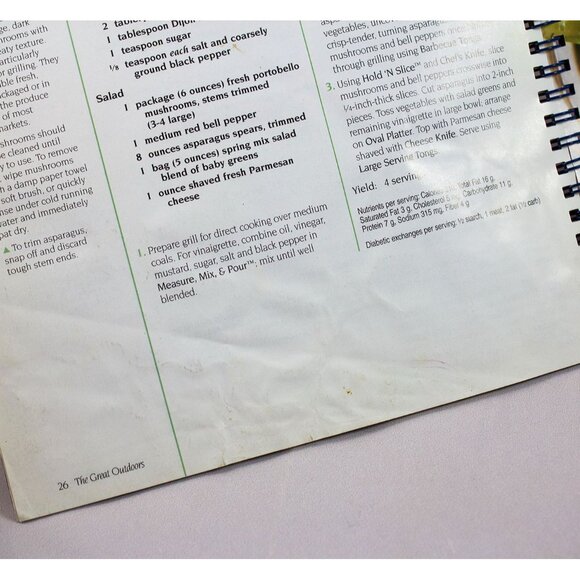 ge, dark
shrooms with
eaty texture.
articularly
or grilling. They
ble fresh,
ackaged or in
the produce
of most
arkets.
shrooms should
e cleaned until
y to use. To remove
wipe mushrooms
a damp paper towel
soft brush, or quickly
nse under cold running
water and immediately
pat dry.
▲ To trim asparagus,
snap off and discard
tough stem ends.
2 table
1 tablespoon Dijon
1 teaspoon sugar
1/8 teaspoon each salt and coarsely
ground black pepper
Salad
1 package (6 ounces) fresh portobello
mushrooms, stems trimmed
(3-4 large)
1 medium red bell pepper
8 ounces asparagus spears, trimmed
1 bag (5 ounces) spring mix salad
blend of baby greens
1 ounce shaved fresh Parmesan
cheese
1. Prepare grill for direct cooking over medium
coals. For vinaigrette, combine oil, vinegar,
mustard, sugar, salt and black pepper in
Measure, Mix, & Pour™; mix until well
blended.
vegetables, unco
crisp-tender, turning asparagus
mushrooms and bell peppers
through grilling using Barbecue Tongs.
3. Using Hold 'N Slice™ and Chef's Knife, slice
mushrooms and bell peppers crosswise into
¼-inch-thick slices. Cut asparagus into 2-inch
pieces. Toss vegetables with salad greens and
remaining vinaigrette in large bowl; arrange
on Oval Platter. Top with Parmesan cheese
shaved with Cheese Knife. Serve using
Large Serving Tongs.
Yield: 4 servin
Nutrients per serving: Calories Total Fat 16 g,
Saturated Fat 3 g, Cholesterol 5 Carbohydrate 11 g,
Protein 7 g, Sodium 315 mg, Fiber 4 g
Diabetic exchanges per serving: ½ starch, 1 meat, 2 fat (½ carb)
26 The Great Outdoors